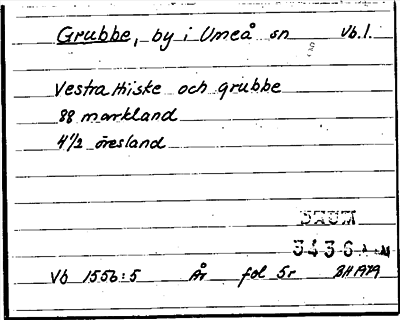 Grubbe, by i Umeå sn Vb.l.
Vestra Hiske och grubbe
88 markland
4 1/2 öresland
DAUM
3436
Vb 1556:5 År fol 5r